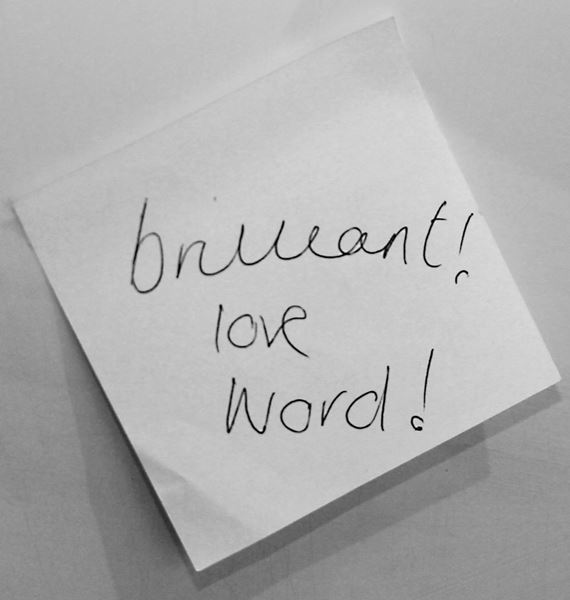 brilliant!
love
Word!